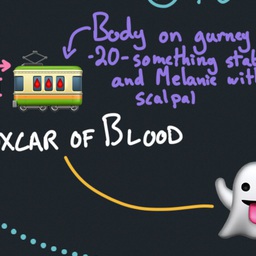 Body on gurney
-20-something stab
and Melanie with
scalpal
XCAR OF BLOOD